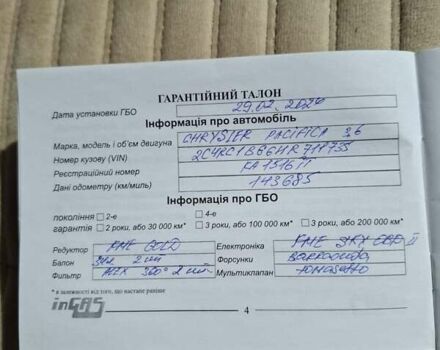 ГАРАНТІЙНИЙ ТАЛОН
Дата установки ГБО 29.02.2024
Інформація про автомобіль
Марка, модель і об'єм двигуна CHRYSLER PACIFICA 3,6
Номер кузову (VIN) 2C4RC1BG6HR711735
Реєстраційний номер KA1516
Дані одометру (км/миль) 143685
Інформація про ГБО
покоління 2-е 4-е
гарантія 2 роки, або 30 000 км* 3 роки, або 100 000 км* 3 роки, або 200 000 км*
Редуктор KME GOLD Електроніка KME SKY
Балон 2 шт Форсунки Barracuda
Фильтр 360° 2 шт Мультиклапан Tomasetto
* в залежності від того, що настане раніше
inGAS
4